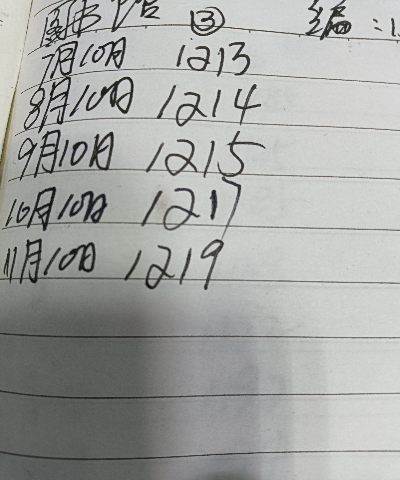 图书馆 ③ 编:1.
7月10日 1213
8月10日 1214
9月10日 1215
10月10日 1217
11月10日 1219